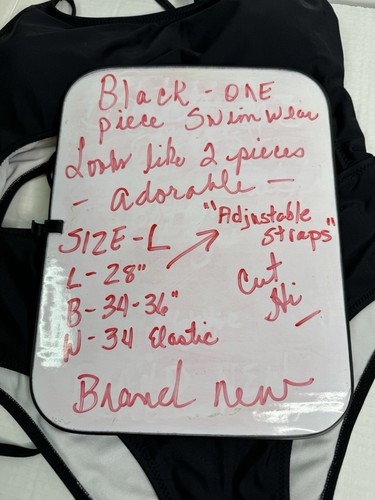 Black - ONE
piece Swimwear
Looks like 2 pieces
- adorable -
SIZE - L
"Adjustable
Straps"
L - 28"
B - 34-36"
W - 34 Elastic
Cut
Hi
Brand new